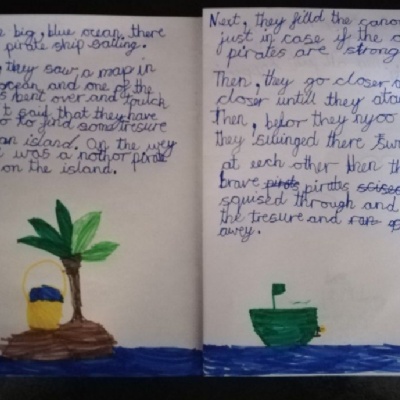 e big, blue ocean there
pirate ship sailing.
they saw a map in
ocean and one of the
s bent over and
t said that they have
to find some tresure
an island. On the wey
was a nothor pirate
on the island.
Next, they filld the canon
just in case if the o
pirates are strong
Then, they go closer
closer untill they atac
Then, befor they nyoo
they swinged there sw
at eech other then th
brave pirats
squised through and
the tresure and ran
awey.